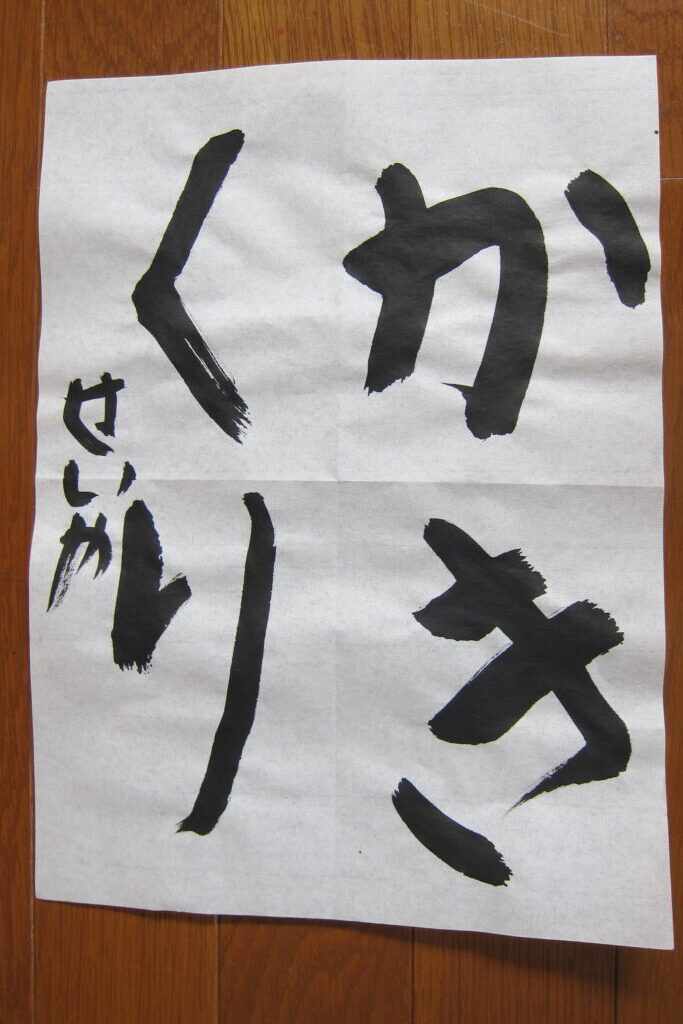 かき
くり
せいか